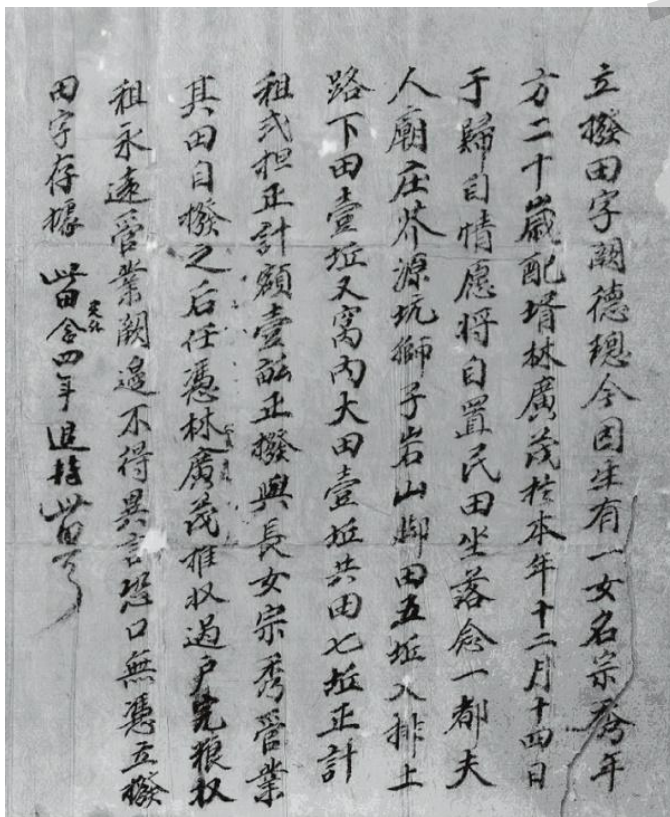 立撥田字闕德璁今因生有一女名宗秀年
方二十歲配壻林廣茂於本年十二月十四日
于歸自情愿將自置民田坐落念一都夫
人廟庄芥源坑獅子岩山脚田五坵入排土
路下田壹坵又窩内大田壹坵共田七坵正計
租弍担正計額壹畝正撥與長女宗秀管業
其田自撥之后任憑林廣茂推收過户完粮收
租永遠管業闕邊不得異言恐口無憑立撥
田字存據 此田念四年退